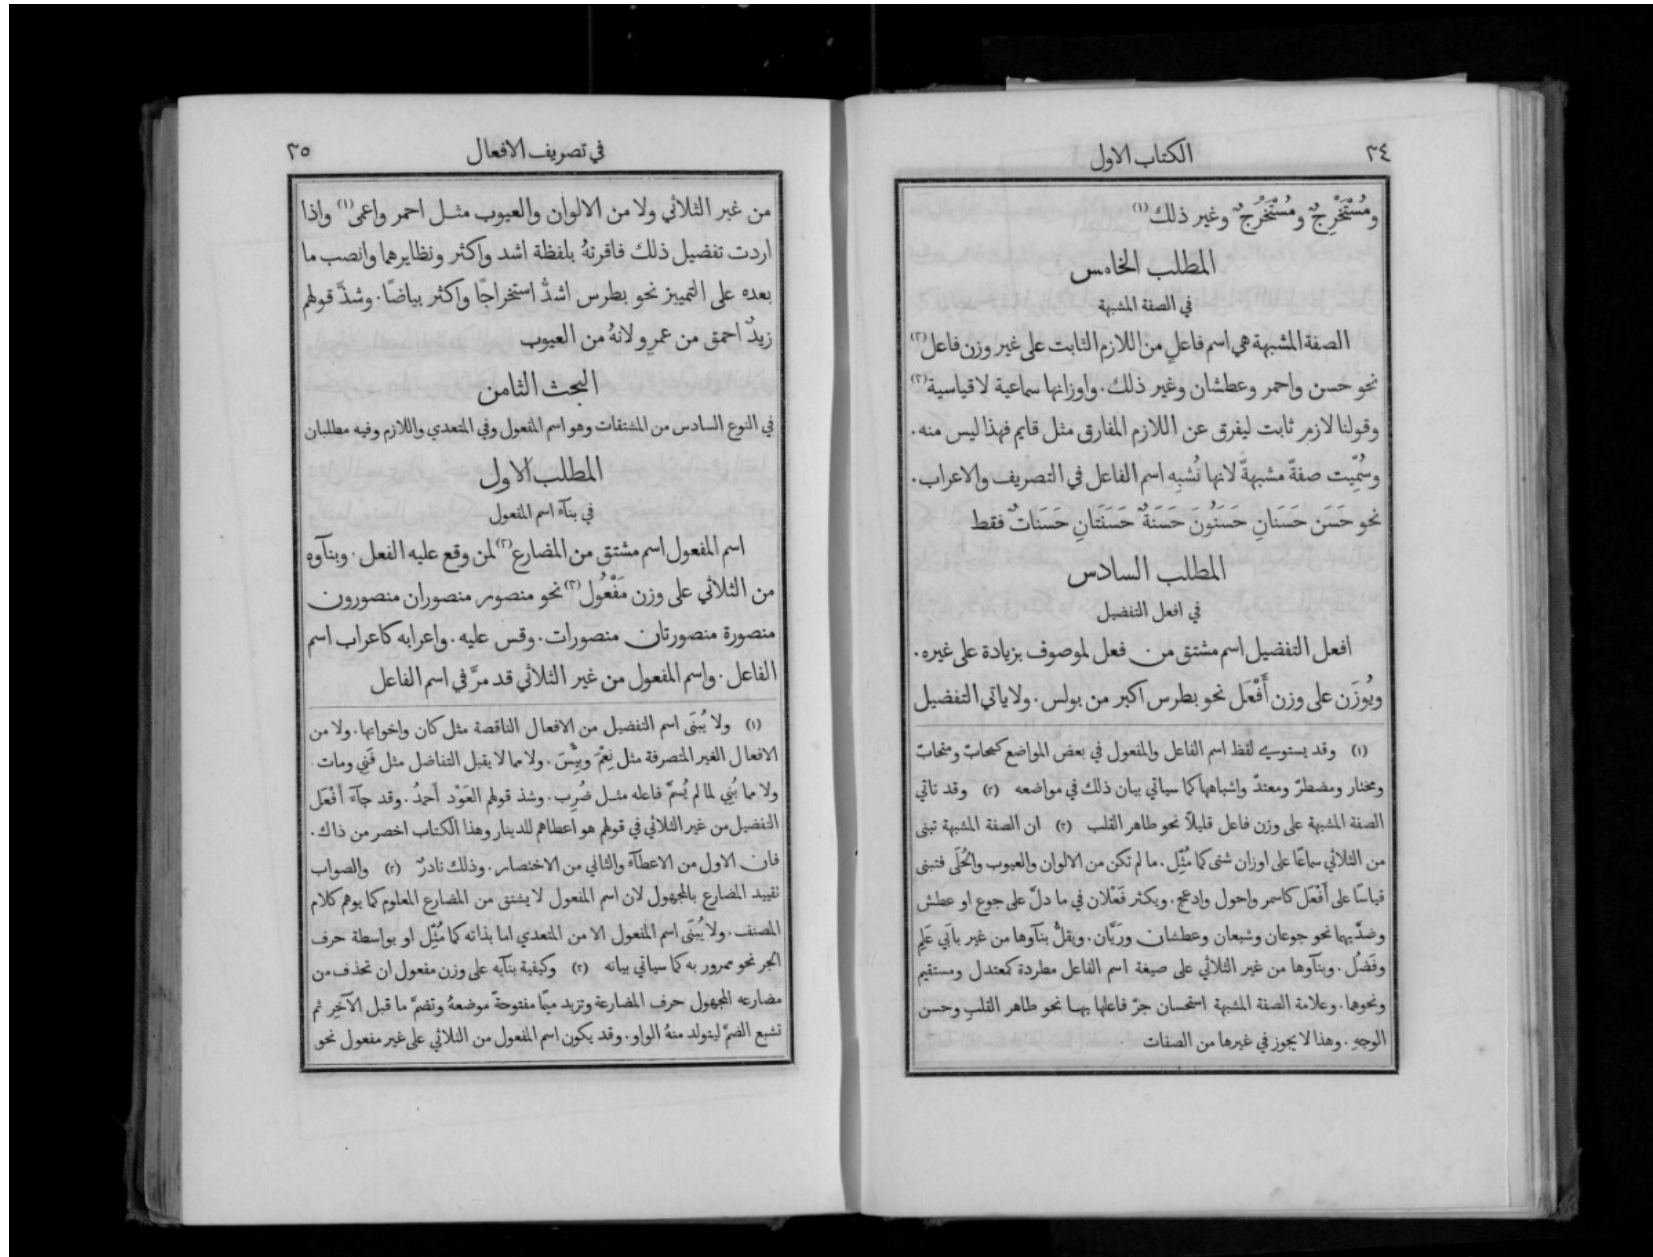 ٣٤
الكتاب الاول
ومُسْتَخْرِجٌ ومُسْتَخْرَجٌ وغير ذلك (١)
المطلب الخامس
في الصفة المشبهة
الصفة المشبهة هي اسم فاعلٍ من اللازم الثابت على غير وزن فاعل (٢)
نحو حسن واحمر وعطشان وغير ذلك. واوزانها سماعية لا قياسية (٣)
وقولنا لازم ثابت ليفرق عن اللازم المفارق مثل قايم فهذا ليس منه.
وسُمِّيت صفةً مشبهةً لانها تُشبِه اسم الفاعل في التصريف والاعراب.
نحو حَسَن حَسَنَانِ حَسَنُونَ حَسَنَةٌ حَسَنَتَانِ حَسَنَاتٌ فقط
المطلب السادس
في افعل التفضيل
افعل التفضيل اسم مشتق من فعل لموصوف بزيادة على غيره.
ويُوزَن على وزن أَفْعَل نحو بطرس اكبر من بولس. ولا ياتي التفضيل
(١) وقد يستوي لفظ اسم الفاعل والمفعول في بعض المواضع كمحابّ ومتحابّ
ومختار ومضطرّ ومعتدّ واشباهها كما سياتي بيان ذلك في مواضعه (٢) وقد تاتي
الصفة المشبهة على وزن فاعل قليلاً نحو طاهر القلب (٣) ان الصفة المشبهة تبنى
من الثلاثي سماعًا على اوزان شتى كما مُثِّل. ما لم تكن من الالوان والعيوب والحُلَى فتبنى
قياسًا على أَفْعَل كاسمر واحول وادعج. ويكثر فَعْلان في ما دلَّ على جوع او عطش
وضدَّيهما نحو جوعان وشبعان وعطشان وريَّان. ويقلُّ بنآوها من غير بابَي عَلِم
وفَضُل. وبنآوها من غير الثلاثي على صيغة اسم الفاعل مطردة كمعتدل ومستقيم
ونحوها. وعلامة الصفة المشبهة استحسان جرّ فاعلها بها نحو طاهر القلب وحسن
الوجهِ. وهذا لا يجوز في غيرها من الصفات
في تصريف الافعال
٣٥
من غير الثلاثي ولا من الالوان والعيوب مثل احمر واعمى (١) واذا
اردت تفضيل ذلك فاقرنهُ بلفظة اشد واكثر ونظايرهما وانصب ما
بعده على التمييز نحو بطرس اشدُّ استخراجًا واكثر بياضًا. وشذَّ قولهم
زيدٌ احمق من عمرٍو لانهُ من العيوب
البحث الثامن
في النوع السادس من المشتقات وهو اسم المفعول وفي المتعدي واللازم وفيه مطلبان
المطلب الاول
في بنآء اسم المفعول
اسم المفعول اسم مشتق من المضارع (٢) لمن وقع عليه الفعل. وبنآوه
من الثلاثي على وزن مَفْعُول (٣) نحو منصور منصوران منصورون
منصورة منصورتان منصورات. وقس عليه. واعرابه كاعراب اسم
الفاعل. واسم المفعول من غير الثلاثي قد مرَّ في اسم الفاعل
(١) ولا يُبنَى اسم التفضيل من الافعال الناقصة مثل كان واخواتها. ولا من
الافعال الغير المتصرفة مثل نِعْمَ وبِئْسَ. ولا مما لا يقبل التفاضل مثل فَنِي ومات.
ولا مما بُنِي لما لم يُسَمَّ فاعله مثل ضُرِب. وشذ قولهم العَوْد أَحمدُ. وقد جآء أَفْعَل
التفضيل من غير الثلاثي في قولهم هو اعطاهم للدينار وهذا الكتاب اخصر من ذاك.
فان الاول من الاعطآء والثاني من الاختصار. وذلك نادرٌ (٢) والصواب
تقييد المضارع بالمجهول لان اسم المفعول لا يشتق من المضارع المعلوم كما يوهم كلام
المصنف. ولا يُبنَى اسم المفعول الا من المتعدي اما بذاته كما مُثِّل او بواسطة حرف
الجر نحو ممرور به كما سياتي بيانه (٣) وكيفية بنآيه على وزن مفعول ان تحذف من
مضارعه المجهول حرف المضارعة وتزيد ميمًا مفتوحةً موضعهُ وتضمَّ ما قبل الآخِر ثم
تشبع الضمَّ ليتولد منهُ الواو. وقد يكون اسم المفعول من الثلاثي على غير مفعول نحو